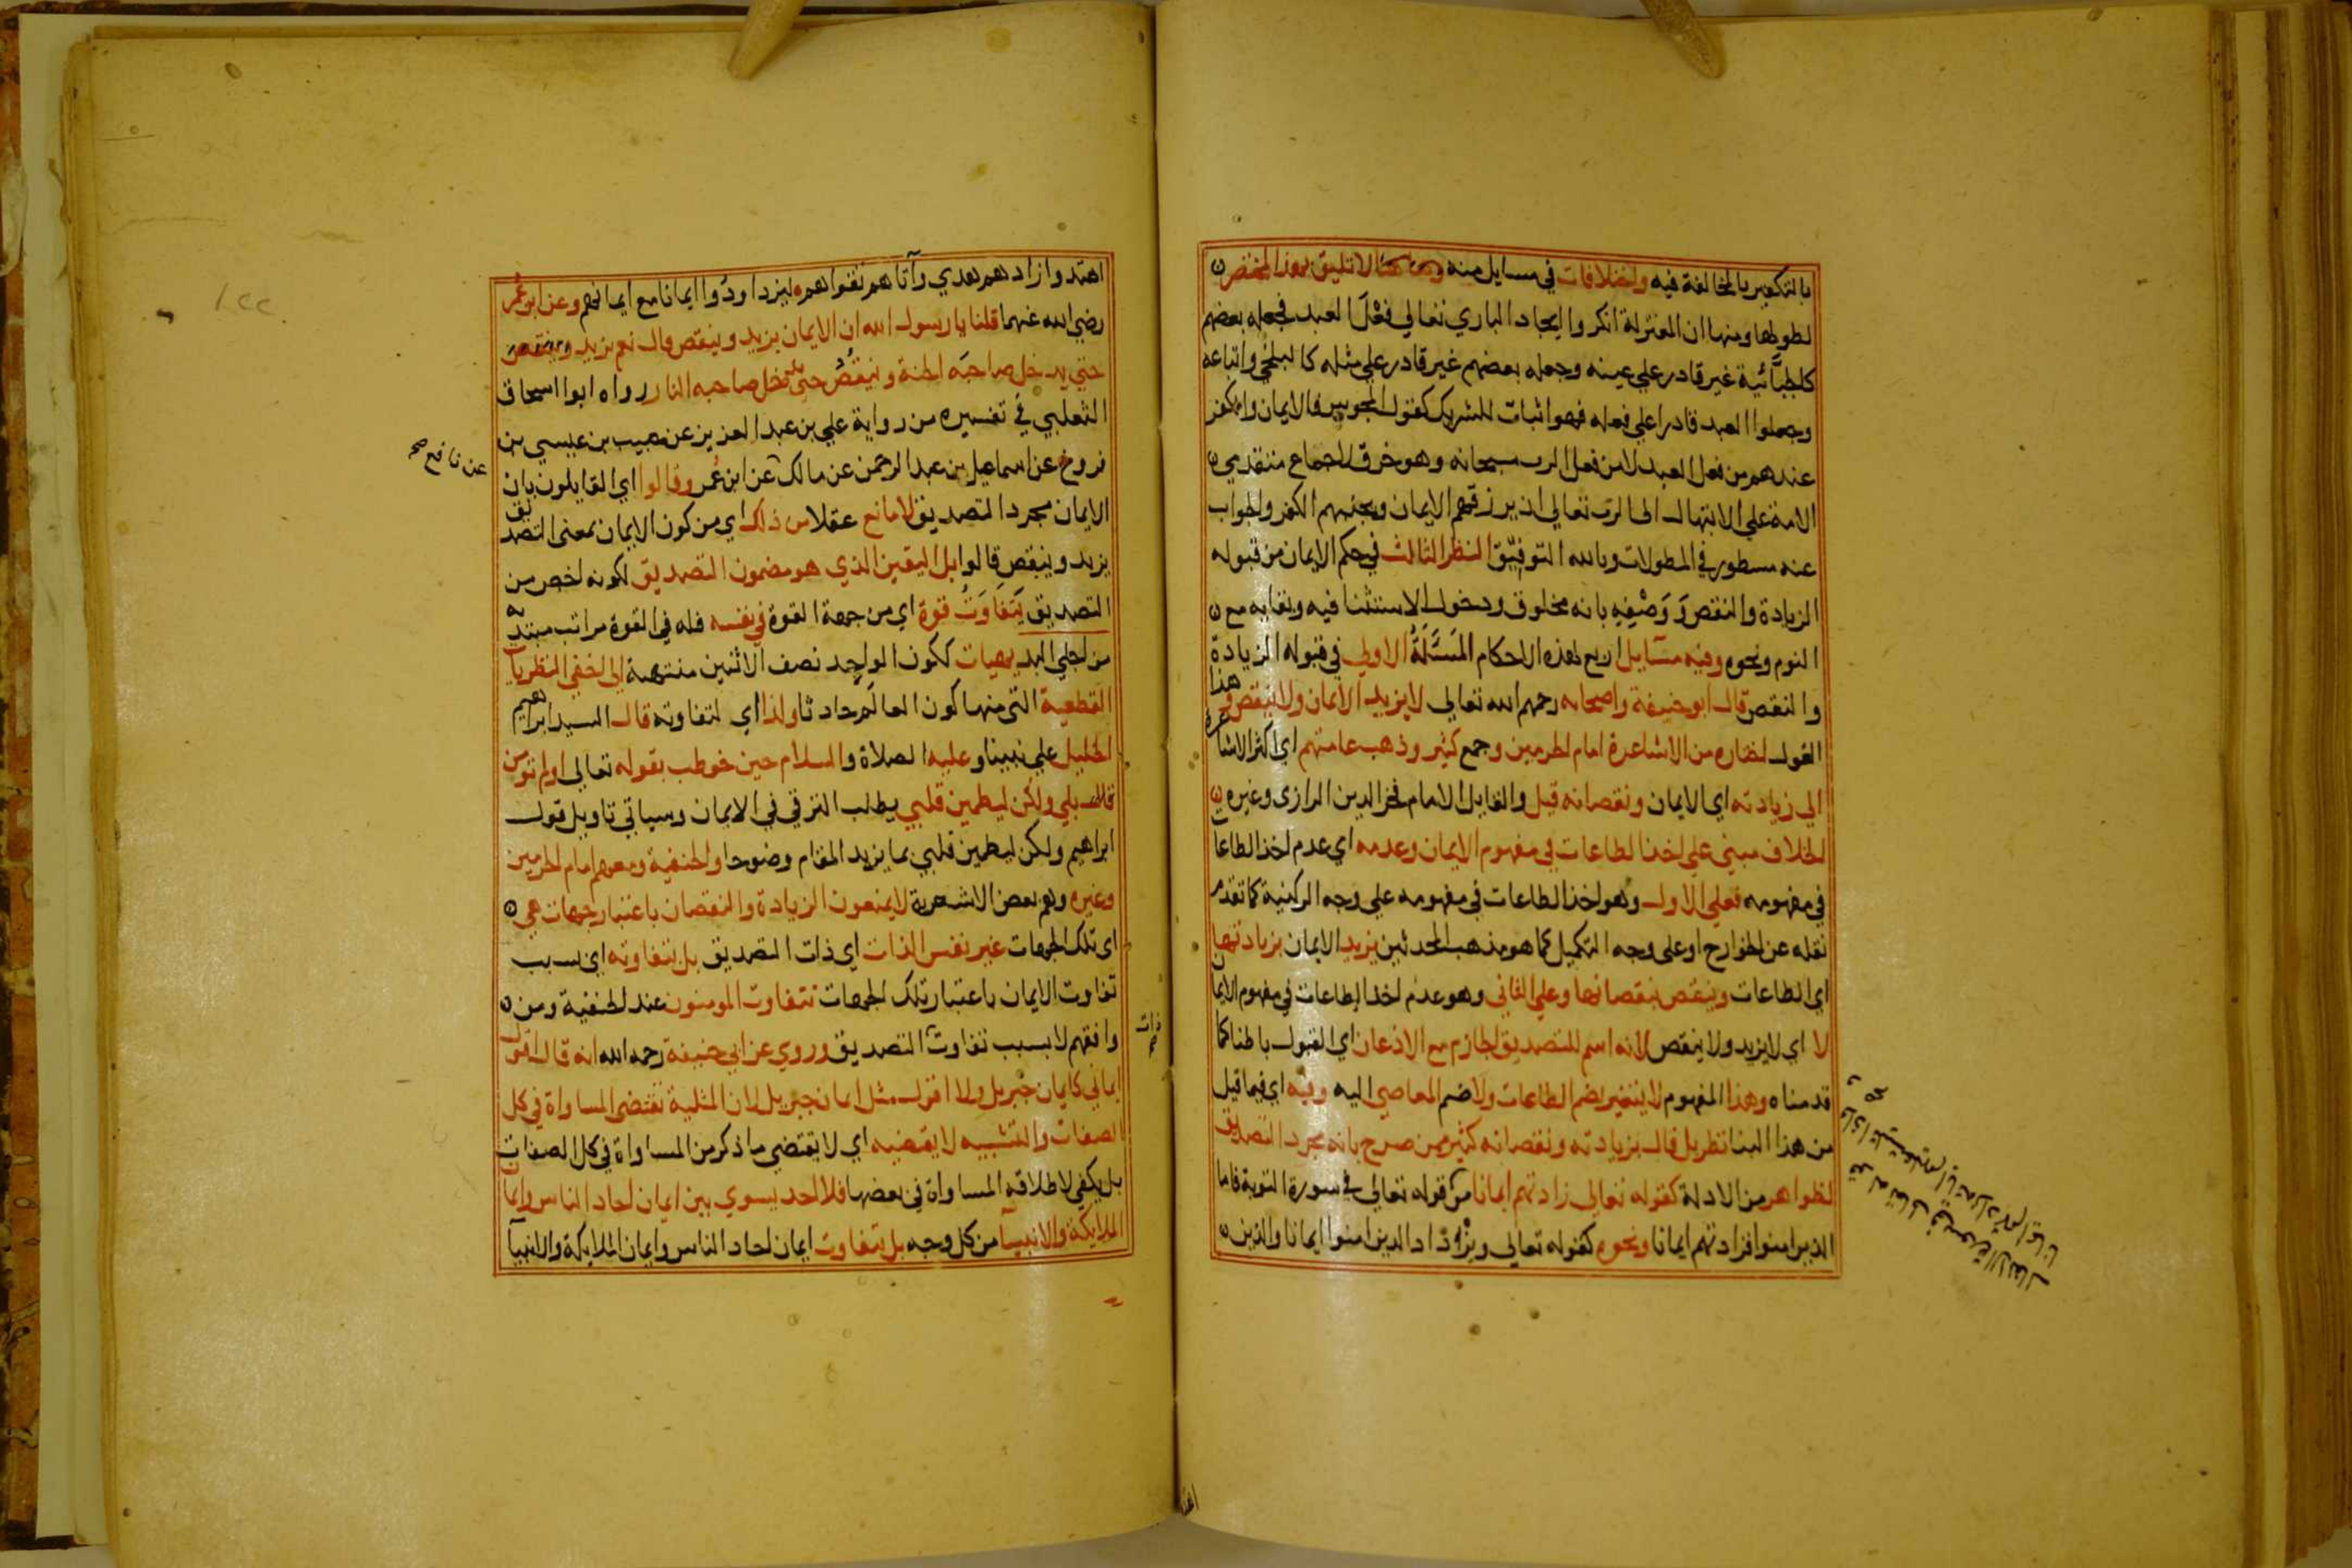 بالتكفير بالمخالفة فيه واختلافات في مسايل منه لا تليق بهذا المختصر
لطولها ومنها ان المعتزلة انكروا ايجاد الباري تعالي فعل العبد فجعله بعضهم
كالجبَّائية غير قادر علي عينه وجعله بعضهم غير قادر علي مثله كالبلخي واتباعه
وجعلوا العبد قادرا علي فعله فهو اثبات للشريك كقول المجوس فالايمان والكفر
عندهم من فعل العبد لا من فعل الرب سبحانه وهو خرق لاجماع متقدمي
الامة علي الابتهال الي الرب تعالي ان يرزقهم الايمان ويجنبهم الكفر والجواب
عنه مسطور في المطولات وبالله التوفيق النظر الثالث في حكم الايمان من قبوله
الزيادة والنقص وَوَصْفِهِ بانه مخلوق ودخول الاستثنا فيه وبقايه مع
النوم ونحوه وفيه مسَايل اربع لهذه الاحكام المَسْئَلَةُ الاولي في قبوله الزيادة
والنقص قال ابو حنيفة واصحابه رحمهم الله تعالي لا يزيد الايمان ولا ينقص وهذا
القول اختاره من الاشاعرة امام الحرمين وجمع كثير وذهب عامتهم اي اكثر الاشاعرة
الي زيادته اي الايمان ونقصانه قيل والقايل الامام فخر الدين الرازي وغيره
الخلاف مبني علي اخذ الطاعات في مفهوم الايمان وعدمه اي عدم اخذ الطاعات
في مفهومه فعلي الاول وهو اخذ الطاعات في مفهومه علي وجه الركنية كما تقدم
نقله عن الخوارج او علي وجه التكميل كما هو مذهب المحدثين يزيد الايمان بزيادتها
اي الطاعات وينقص بنقصانها وعلي الثاني وهو عدم اخذ الطاعات في مفهوم الايمان
لا اي لا يزيد ولا ينقص لانه اسم للتصديق الجازم مع الاذعان اي القبول باطنا كما
قدمناه وهذا المفهوم لا يتغير بضم الطاعات ولا ضم المعاصي اليه وفيه اي فيما قيل
من هذا البنا نظر بل قال بزيادته ونقصانه كثير ممن صرح بانه مجرد التصديق
لظواهر من الادلة كقوله تعالي زادتهم ايمانا من قوله تعالي في سورة التوبة فاما
الذين امنوا فزادتهم ايمانا ونحوه كقوله تعالي ويزداد الذين امنوا ايمانا والذين
قوله تعالى في سورة الانفال
واذا تليت عليهم اياته زادتهم ايمانا
صح
اهتدوا زادهم هدي وآتاهم تقواهم ليزدادوا ايمانا مع ايمانهم وعن ابن عُمر
رضي الله عنهما قلنا يا رسول الله ان الايمان يزيد وينقص قال نعم يزيد وينقص
حتي يدخل صاحبَه الجنة وينقُصُ حتي يدخل صاحبه النار رواه ابو اسحاق
الثعلبي في تفسيره من رواية علي بن عبد العزيز عن حبيب بن عيسي بن
فروخ عن اسماعيل بن عبد الرحمن عن مالك عن ابن عُمر وقالوا اي القايلون بان
عن نافع صح
الايمان مجرد التصديق لا مانع عقلا من ذلك اي من كون الايمان بمعني التصديق
يزيد وينقص قالوا بل اليقين الذي هو مضمون التصديق لكونه اخص من
التصديق يَتَفَاوَتُ قوة اي من جهة القوة في نفسه فله في القوة مراتب مبتدية
من اجلي البديهيات ككون الواحد نصف الاثنين منتهية الي اخفي النظريات
القطعية التي منها كون العالَم حادثا ولذا اي لتفاوته قال السيد ابراهيم
الخليل علي نبينا وعليه الصلاة والسلام حين خوطب بقوله تعالي اولم تومن
قال بلي ولكن ليطمين قلبي يطلب الترقي في الايمان وسياتي تاويل قول
ابراهيم ولكن ليطمين قلبي بما يزيد المقام وضوحا والحنفية ومعهم امام الحرمين
وغيره وهم بعض الاشعرية لا يمنعون الزيادة والنقصان باعتبار جهات هي
اي تلك الجهات غير نفس الذات اي ذات التصديق بل بتفاوته اي بسبب
تفاوت الايمان باعتبار تلك الجهات تتفاوت المومنون عند الحنفية ومن
وافقهم لا بسبب تفاوت التصديق وروي عن ابي حنيفة رحمه الله انه قال اقول
ذات
صح
ايماني كايمان جبريل ولا اقول مثل ايمان جبريل لان المثلية تقتضي المساواة في كل
الصفات والتشبيه لا يقتضيه اي لا يقتضي ما ذكر من المساواة في كل الصفات
بل يكفي لاطلاقه المساواة في بعضها فلا احد يسوي بين ايمان احاد الناس وايمان
الملايكة والانبيآ من كل وجه بل يتفاوت ايمان احاد الناس وايمان الملايكة والانبيآ